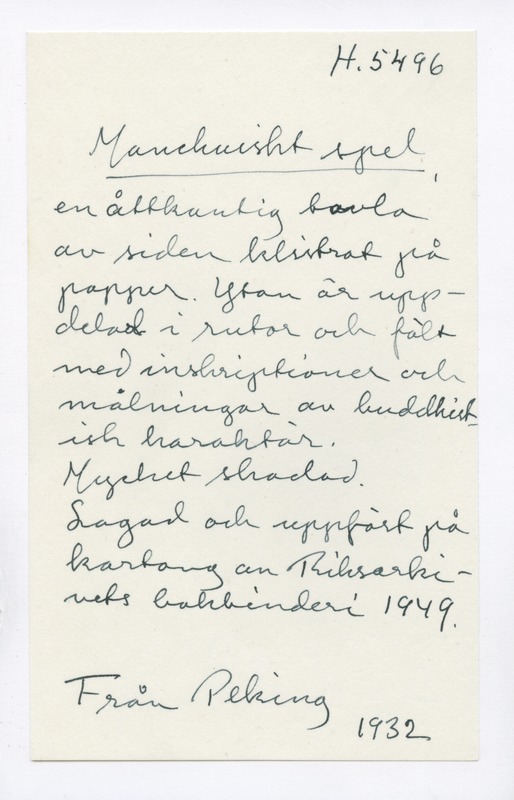 H. 5496
Manchuiskt spel,
en åttkantig tavla
av siden klistrat på
papper. Ytan är upp-
delad i rutor och fält
med inskriptioner och
målningar av buddhist-
isk karaktär.
Mycket skadad.
Lagad och uppfäst på
kartong av Riksarki-
vets bokbinderi 1949.
Från Peking
1932